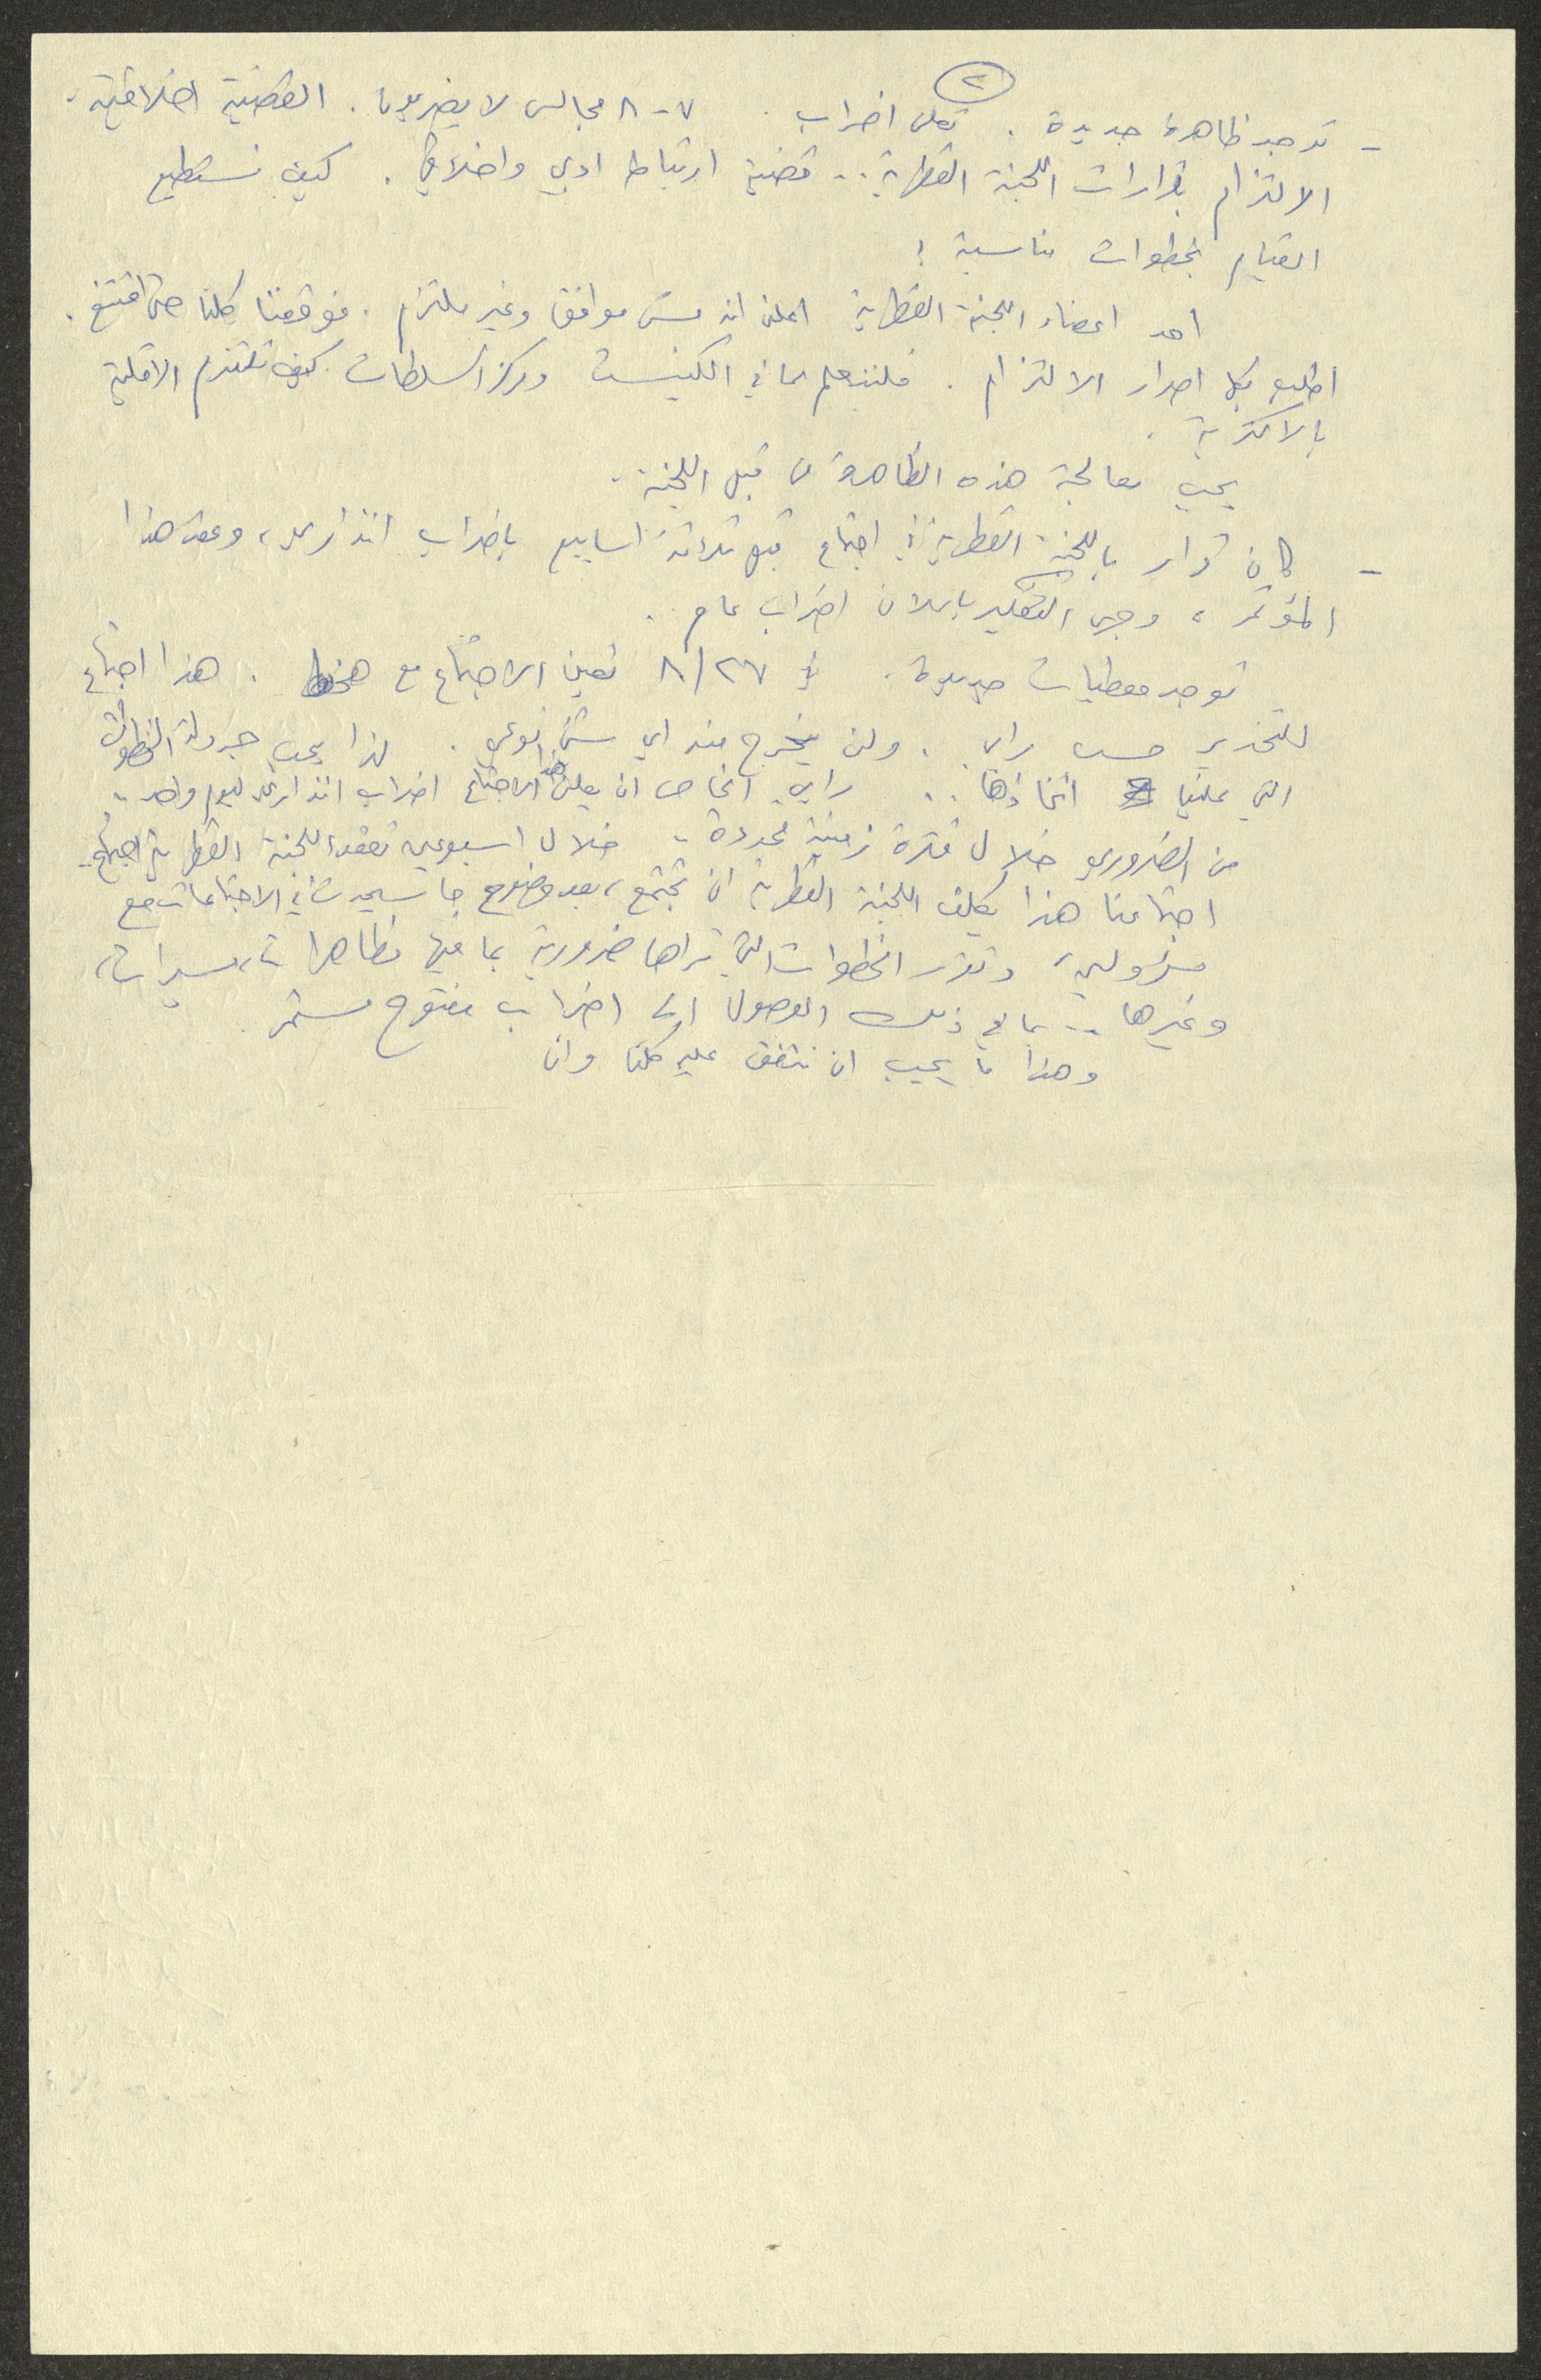 ٢
- توجد ظاهرة جديدة . نعلن اضراب . ٧-٨ مجالس لا يضربون . القضية اخلاقية .
الالتزام بقرارات اللجنة القطرية .. قضية ارتباط ادبي واخلاقي . كيف نستطيع
القيام بخطوات مناسبة !
احد اعضاء اللجنة القطرية اعلن انه مش موافق وغير ملتزم . فوقعنا كلنا حتى اقتنع .
اطلب بكل اصرار الالتزام . فلنتعلم مما في الكنيست ومركز السلطات كيف تلتزم الاقلية
بالاكثرية .
يجب معالجة هذه الظاهرة من قبل اللجنة .
- كان قرار باللجنة القطرية في اجتماع قبل ثلاثة اسابيع باضراب انذاري، وعقد هذا
المؤتمر، وجرى التفكير باعلان اضراب عام .
توجد معطيات جديدة . في ٢٧/٨ تعين الاجتماع مع . هذا اجتماع
للتخدير حسب رايي . ولن يخرج منه اي شيء نوعي . لذا يجب جدولة الخطوات
التي علينا اتخاذها .. رايي الخاص ان يعلن هذا الاجتماع اضراب انذاري ليوم واحد ..
من الضروري خلال فترة زمنية محددة . خلال اسبوعين تعقد اللجنة القطرية اجتماع .
اجتماعنا هذا يكلف اللجنة القطرية ان تجتمع، بعد وضوح ما سيحدث في الاجتماعات مع
مسؤولين، وتقرر الخطوات التي تراها ضرورية بما فيها مظاهرات، مسيرات،
وغيرها .. بما في ذلك الوصول الى اضراب مفتوح مستمر .
وهذا ما يجب ان نتفق عليه كلنا وان